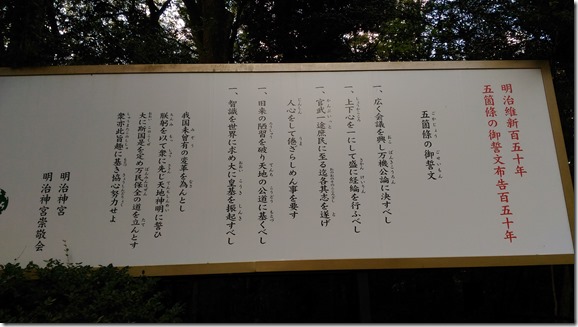 明治維新百五十年
五箇條の御誓文布告百五十年
五箇條の御誓文
一、広く会議を興し万機公論に決すべし
一、上下心を一にして盛に経綸を行ふべし
一、官武一途庶民に至る迄各其志を遂げ
人心をして倦ざらしめん事を要す
一、旧来の陋習を破り天地の公道に基くべし
一、智識を世界に求め大に皇基を振起すべし
我国未曾有の変革を為んとし
朕躬を以て衆に先じ天地神明に誓ひ
大に斯国是を定め万民保全の道を立んとす
衆亦此旨趣に基き協心努力せよ
明治神宮
明治神宮崇敬会